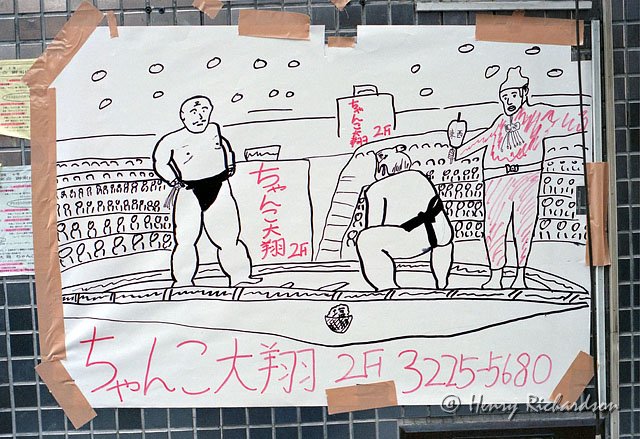 ちゃんこ大翔 2F
東西
ちゃんこ大翔 2F
塩
ちゃんこ大翔 2F 3225-5680
© Henry Richardson